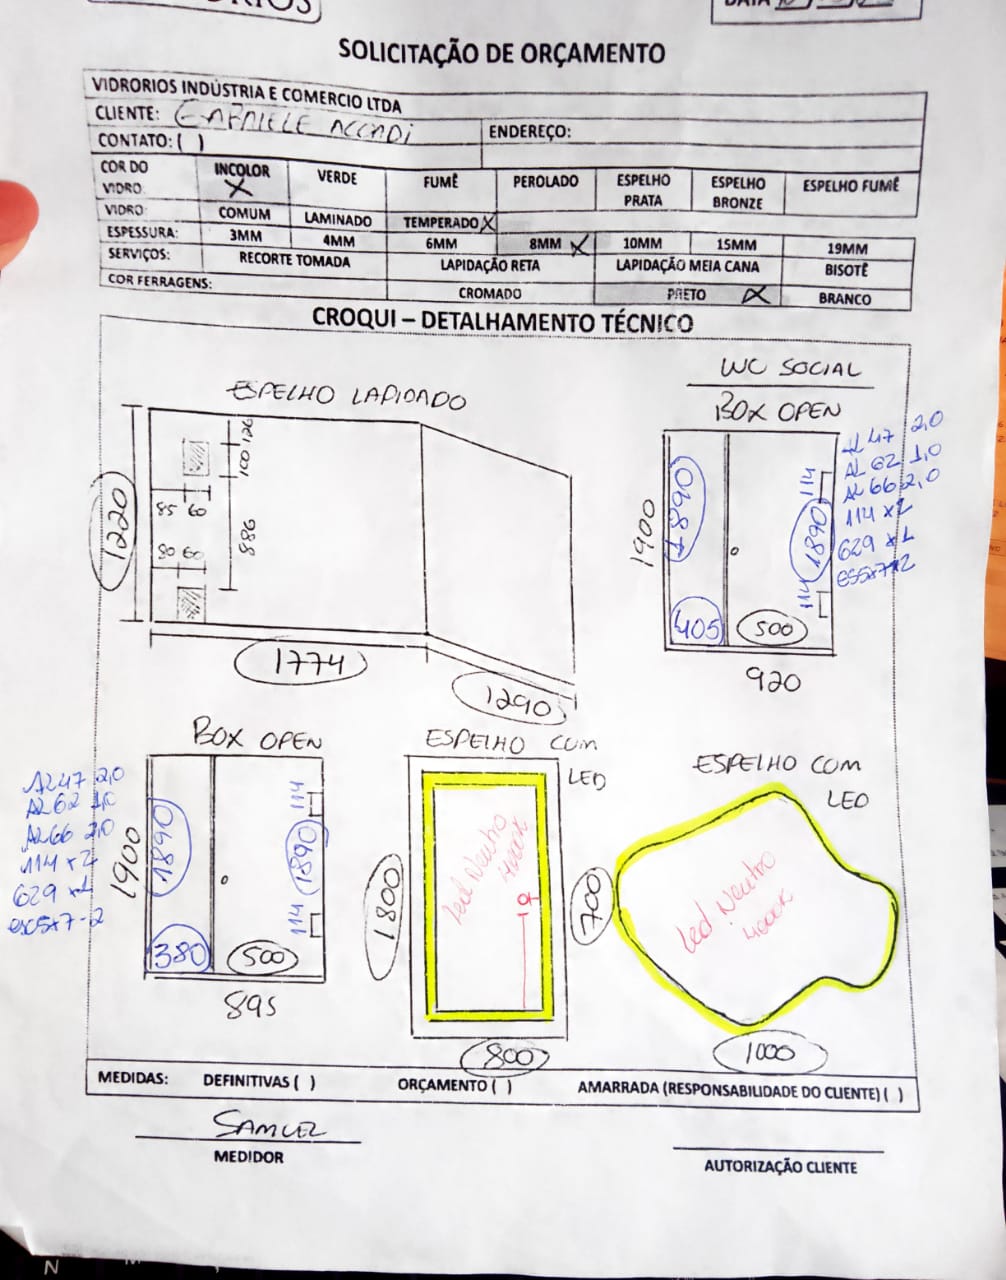 DATA
SOLICITAÇÃO DE ORÇAMENTO
VIDRORIOS INDÚSTRIA E COMERCIO LTDA
CLIENTE:
CONTATO: ( )
ENDEREÇO:
COR DO VIDRO: INCOLOR X VERDE FUMÊ PEROLADO ESPELHO PRATA ESPELHO BRONZE ESPELHO FUMÊ
VIDRO: COMUM LAMINADO TEMPERADO X
ESPESSURA: 3MM 4MM 6MM 8MM X 10MM 15MM 19MM
SERVIÇOS: RECORTE TOMADA LAPIDAÇÃO RETA LAPIDAÇÃO MEIA CANA BISOTÊ
COR FERRAGENS: CROMADO PRETO X BRANCO
CROQUI – DETALHAMENTO TÉCNICO
ESPELHO LAPIDADO
1220
126
100
85 60
886
80 60
1774
1290
WC SOCIAL
BOX OPEN
1900
1890
114
1890
114
405
500
920
AL 47 2,0
AL 62 1,0
AL 66 2,0
114 x 2
629 x 1
BOX OPEN
AL47 2,0
AL62 1,0
AL66 2,0
114 x 2
629 x 1
1900
1890
114
1890
114
380
500
895
ESPELHO COM
LED
1800
Led Neutro
4000K
800
ESPELHO COM
LED
700
Led Neutro
4000K
1000
MEDIDAS: DEFINITIVAS ( ) ORÇAMENTO ( ) AMARRADA (RESPONSABILIDADE DO CLIENTE) ( )
SAMUEL
MEDIDOR
AUTORIZAÇÃO CLIENTE
N